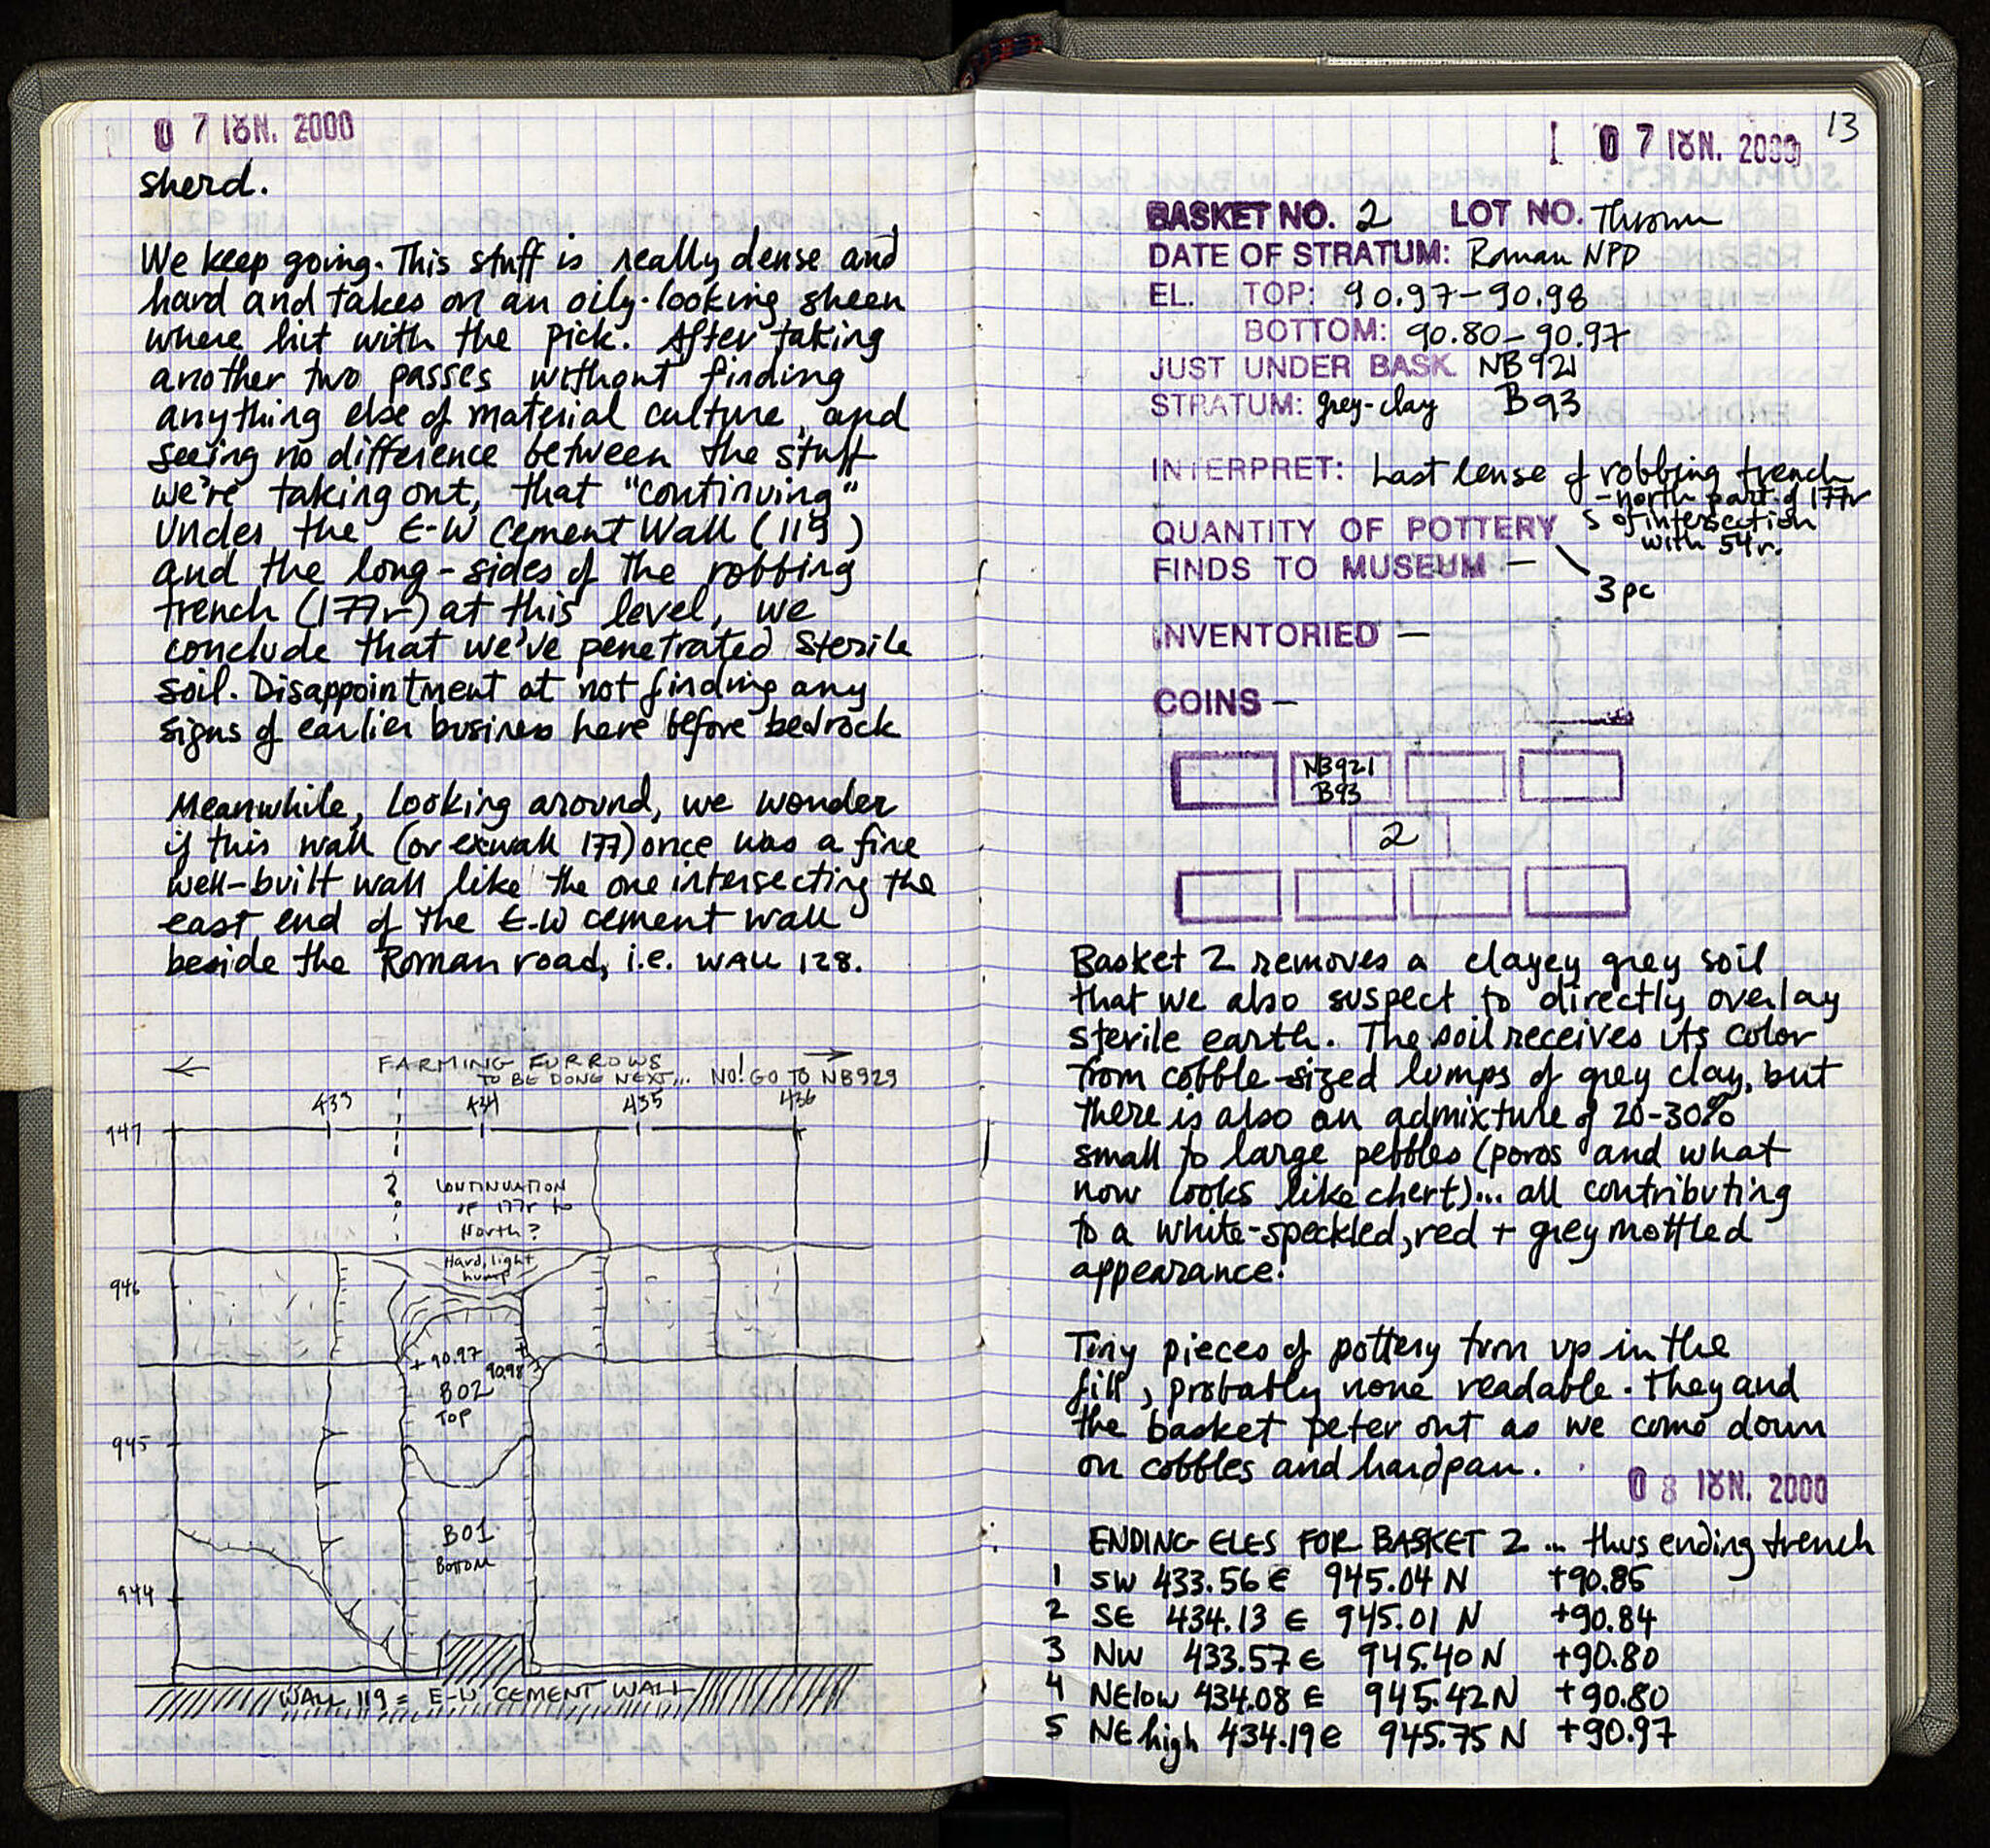 0 7 ΙΟΥΝ. 2000
sherd.
We keep going. This stuff is really dense and
hard and takes on an oily-looking sheen
where hit with the pick. After taking
another two passes without finding
anything else of material culture, and
seeing no difference between the stuff
we're taking out, that "continuing"
under the E-W Cement Wall (119)
and the long-sides of the robbing
trench (177r) at this level, we
conclude that we've penetrated sterile
soil. Disappointment at not finding any
signs of earlier business here before bedrock
Meanwhile, looking around, we wonder
if this wall (or exwall 177) once was a fine
well-built wall like the one intersecting the
east end of the E-W cement wall
beside the Roman road, i.e. WALL 128.
← FARMING FURROWS →
TO BE DONE NEXT... NO! GO TO NB929
433 434 435 436
947
?
CONTINUATION
OF 177r to
North?
Hard, light
hump
946
+90.97
90.98
B02
TOP
945
B01
Bottom
944
WALL 119 = E-W CEMENT WALL
13
0 7 ΙΟΥΝ. 2000
BASKET NO. 2 LOT NO. Thrown
DATE OF STRATUM: Roman NPD
EL. TOP: 90.97-90.98
BOTTOM: 90.80-90.97
JUST UNDER BASK. NB921
STRATUM: grey-clay B93
INTERPRET: Last lense of robbing trench
- north part of 177r
S of intersection
with 54r.
QUANTITY OF POTTERY
3pc
FINDS TO MUSEUM —
INVENTORIED —
COINS —
NB921
B93
2
Basket 2 removes a clayey grey soil
that we also suspect to directly overlay
sterile earth. The soil receives its color
from cobble-sized lumps of grey clay, but
there is also an admixture of 20-30%
small to large pebbles (poros and what
now looks like chert)... all contributing
to a white-speckled, red + grey mottled
appearance.
Tiny pieces of pottery turn up in the
fill, probably none readable. They and
the basket peter out as we come down
on cobbles and hardpan.
0 8 ΙΟΥΝ. 2000
ENDING ELES FOR BASKET 2 ... thus ending trench
1 SW 433.56 E 945.04 N +90.85
2 SE 434.13 E 945.01 N +90.84
3 NW 433.57 E 945.40 N +90.80
4 NE low 434.08 E 945.42 N +90.80
5 NE high 434.19 E 945.75 N +90.97